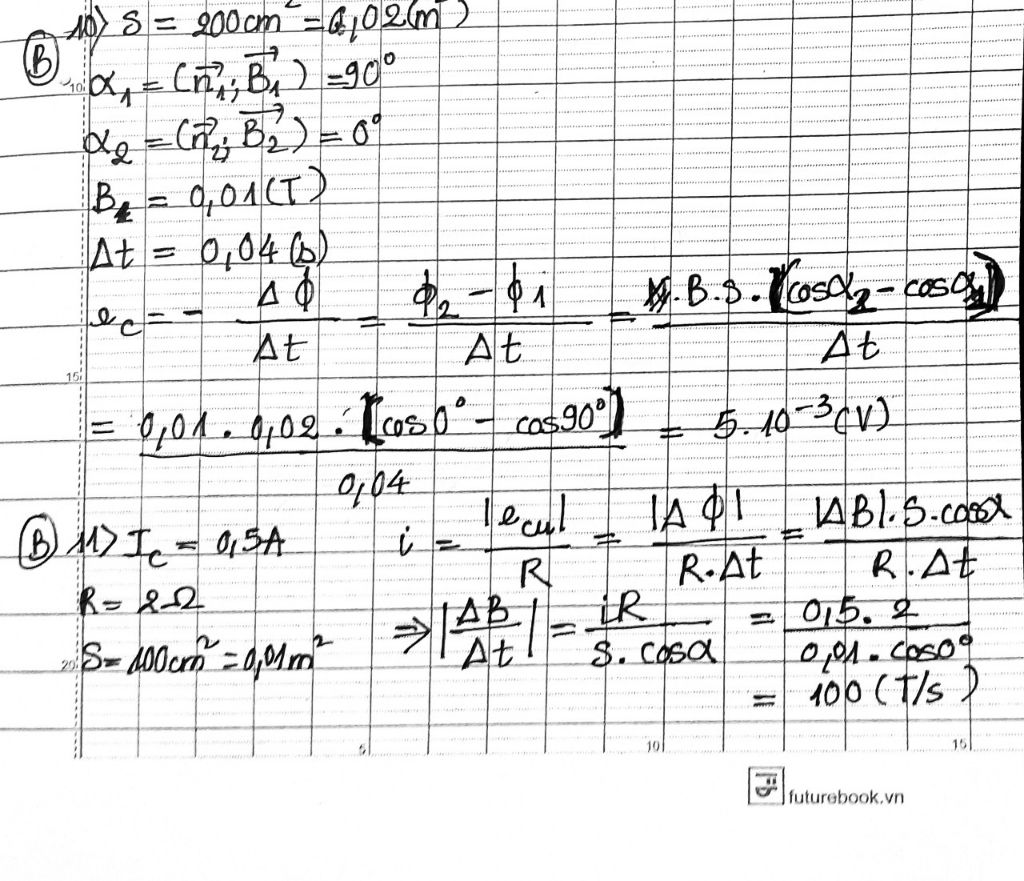 10) S = 200cm² = 0,02(m²)
(B)
α₁ = (n⃗₁; B⃗₁) = 90°
α₂ = (n⃗₂; B⃗₂) = 0°
B = 0,01(T)
Δt = 0,04(s)
e_c = - ΔΦ/Δt = (Φ₂ - Φ1)/Δt = .B.S.[(cosα₂ - cosα₁)]/Δt
= 0,01 . 0,02 . [cos0° - cos90°]/0,04 = 5.10⁻³(V)
(B) 11) I_c = 0,5A i = |e_cu|/R = |ΔΦ|/(R.Δt) = |ΔB|.S.cosα/(R.Δt)
R = 2Ω ⇒ |ΔB/Δt| = iR/(S.cosα) = 0,5.2/(0,01.cos0°)
S = 100cm² = 0,01m²
= 100(T/s)
10
15
20
5 10 15
futurebook.vn